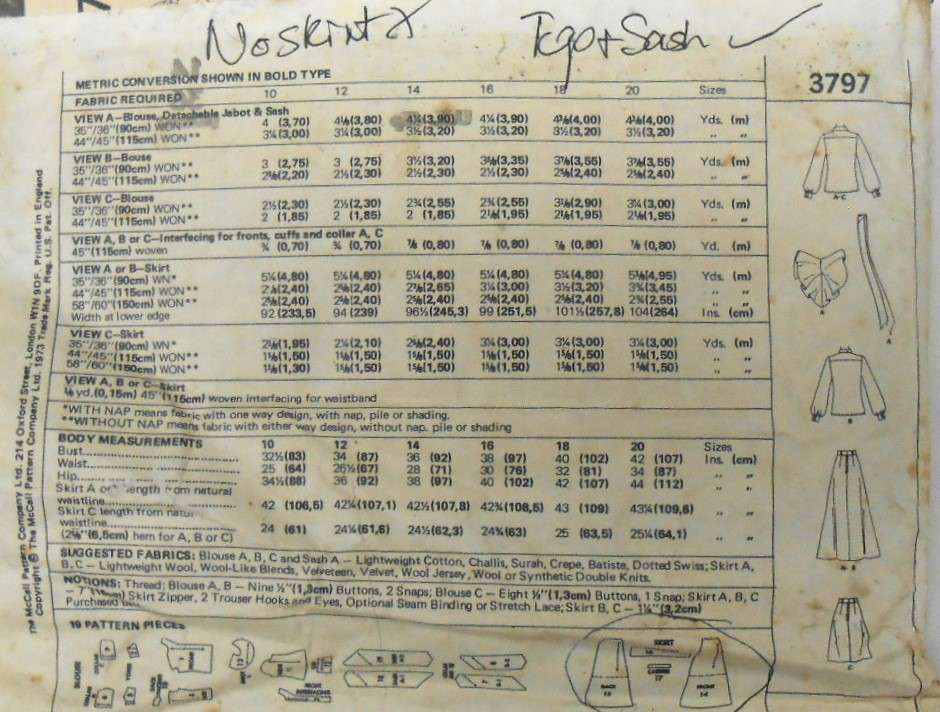 No skirt X
Top + Sash ✓
3797
METRIC CONVERSION SHOWN IN BOLD TYPE
FABRIC REQUIRED 10 12 14 16 18 20 Sizes
VIEW A—Blouse, Detachable Jabot & Sash
35"/36"(90cm) WON** 4 (3,70) 4⅛(3,80) 4¼(3,90) 4¼(3,90) 4⅜(4,00) 4⅜(4,00) Yds. (m)
44"/45"(115cm) WON** 3¼(3,00) 3¼(3,00) 3½(3,20) 3½(3,20) 3½(3,20) 3½(3,20) " "
VIEW B—Bouse
35"/36"(90cm) WON** 3 (2,75) 3 (2,75) 3½(3,20) 3⅝(3,35) 3⅞(3,55) 3⅞(3,55) Yds. (m)
44"/45"(115cm) WON** 2⅜(2,20) 2½(2,30) 2½(2,30) 2½(2,30) 2⅝(2,40) 2⅝(2,40) " "
VIEW C—Blouse
35"/36"(90cm) WON** 2½(2,30) 2½(2,30) 2¾(2,55) 2¾(2,55) 3⅛(2,90) 3¼(3,00) Yds. (m)
44"/45"(115cm) WON** 2 (1,85) 2 (1,85) 2 (1,85) 2⅛(1,95) 2⅛(1,95) 2⅛(1,95) " "
VIEW A, B or C—Interfacing for fronts, cuffs and collar A, C
45"(115cm) woven ¾ (0,70) ¾ (0,70) ⅞ (0,80) ⅞ (0,80) ⅞ (0,80) ⅞ (0,80) Yd. (m)
VIEW A or B—Skirt
35"/36"(90cm) WN* 5¼(4,80) 5¼(4,80) 5¼(4,80) 5¼(4,80) 5¼(4,80) 5⅜(4,95) Yds. (m)
44"/45"(115cm) WON** 2⅝(2,40) 2⅝(2,40) 2⅞(2,65) 3¼(3,00) 3½(3,20) 3¾(3,45) " "
58"/60"(150cm) WON** 2⅝(2,40) 2⅝(2,40) 2⅝(2,40) 2⅝(2,40) 2⅝(2,40) 2¾(2,55) " "
Width at lower edge 92 (233,5) 94 (239) 96½(245,3) 99 (251,5) 101½(257,8) 104(264) Ins. (cm)
VIEW C—Skirt
35"/36"(90cm) WN* 2⅛(1,95) 2¼(2,10) 2⅝(2,40) 3¼(3,00) 3¼(3,00) 3¼(3,00) Yds. (m)
44"/45"(115cm) WON** 1⅝(1,50) 1⅝(1,50) 1⅝(1,50) 1⅝(1,50) 1⅝(1,50) 1⅝(1,50) " "
58"/60"(150cm) WON** (1,30) 1⅝(1,50) 1⅝(1,50) 1⅝(1,50) 1⅝(1,50) 1⅝(1,50) " "
VIEW A, B or C—Skirt
⅛ yd.(0,15m) 45"(115cm) woven interfacing for waistband
*WITH NAP means fabric with one way design, with nap, pile or shading.
**WITHOUT NAP means fabric with either way design, without nap. pile or shading
BODY MEASUREMENTS 10 12 14 16 18 20 Sizes
Bust 32½(83) 34 (87) 36 (92) 38 (97) 40 (102) 42 (107) Ins. (cm)
Waist 25 (64) 26½(67) 28 (71) 30 (76) 32 (81) 34 (87) " "
Hip 34½(88) 36 (92) 38 (97) 40 (102) 42 (107) 44 (112) " "
Skirt A or length from natural
waistline 42 (106,5) 42¼(107,1) 42½(107,8) 42¾(108,5) 43 (109) 43¼(109,6) " "
Skirt C length from
waistline 24 (61) 24¼(61,6) 24½(62,3) 24¾(63) 25 (63,5) 25¼(64,1) " "
(2⅝"(6,5cm) hem for A, B or C)
SUGGESTED FABRICS: Blouse A, B, C and Sash A — Lightweight Cotton, Challis, Surah, Crepe, Batiste, Dotted Swiss; Skirt A,
B, C — Lightweight Wool, Wool-Like Blends, Velveteen, Velvet, Wool Jersey, Wool or Synthetic Double Knits.
NOTIONS: Thread; Blouse A, B — Nine ½"(1,3cm) Buttons, 2 Snaps; Blouse C — Eight ½"(1,3cm) Buttons, 1 Snap; Skirt A, B, C
— 7" Skirt Zipper, 2 Trouser Hooks and Eyes, Optional Seam Binding or Stretch Lace; Skirt B, C — 1¼"(3,2cm)
Purchased
19 PATTERN PIECES
BLOUSE
SKIRT
BACK
CARRIER
17
FRONT
14
FRONT
INTERFACING
A-C
A
A
B
A-B
C
The McCall Pattern Company Ltd. 214 Oxford Street, London W1N 9DF. Printed in England
Copyright © The McCall Pattern Company Ltd. 1973 Trade Mark Reg. U.S. Pat. Off.